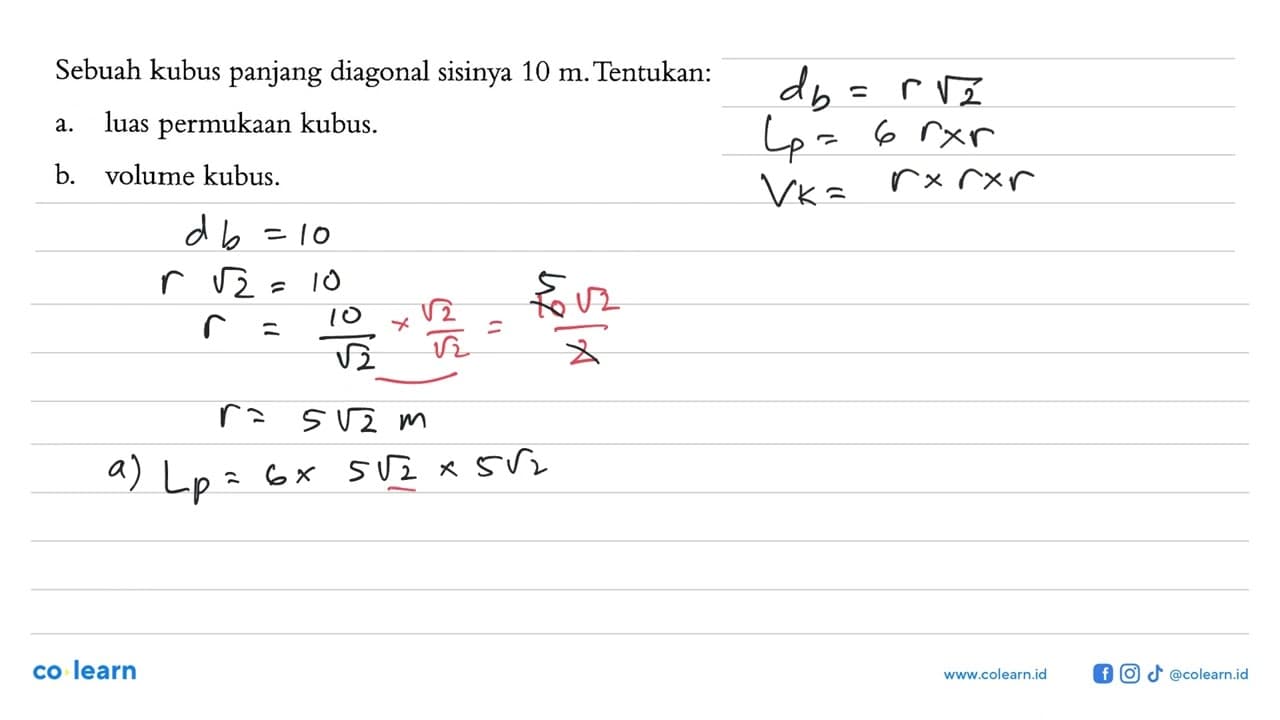 Sebuah kubus panjang diagonal sisinya 10 m. Tentukan:
a. luas permukaan kubus.
b. volume kubus.
db = r √2
Lp = 6 r×r
VK = r × r×r
db = 10
r √2 = 10
r = 10/√2 × √2/√2 = 5 10√2/2
r = 5√2 m
a) Lp = 6× 5√2 × 5√2
co learn
www.colearn.id
@colearn.id